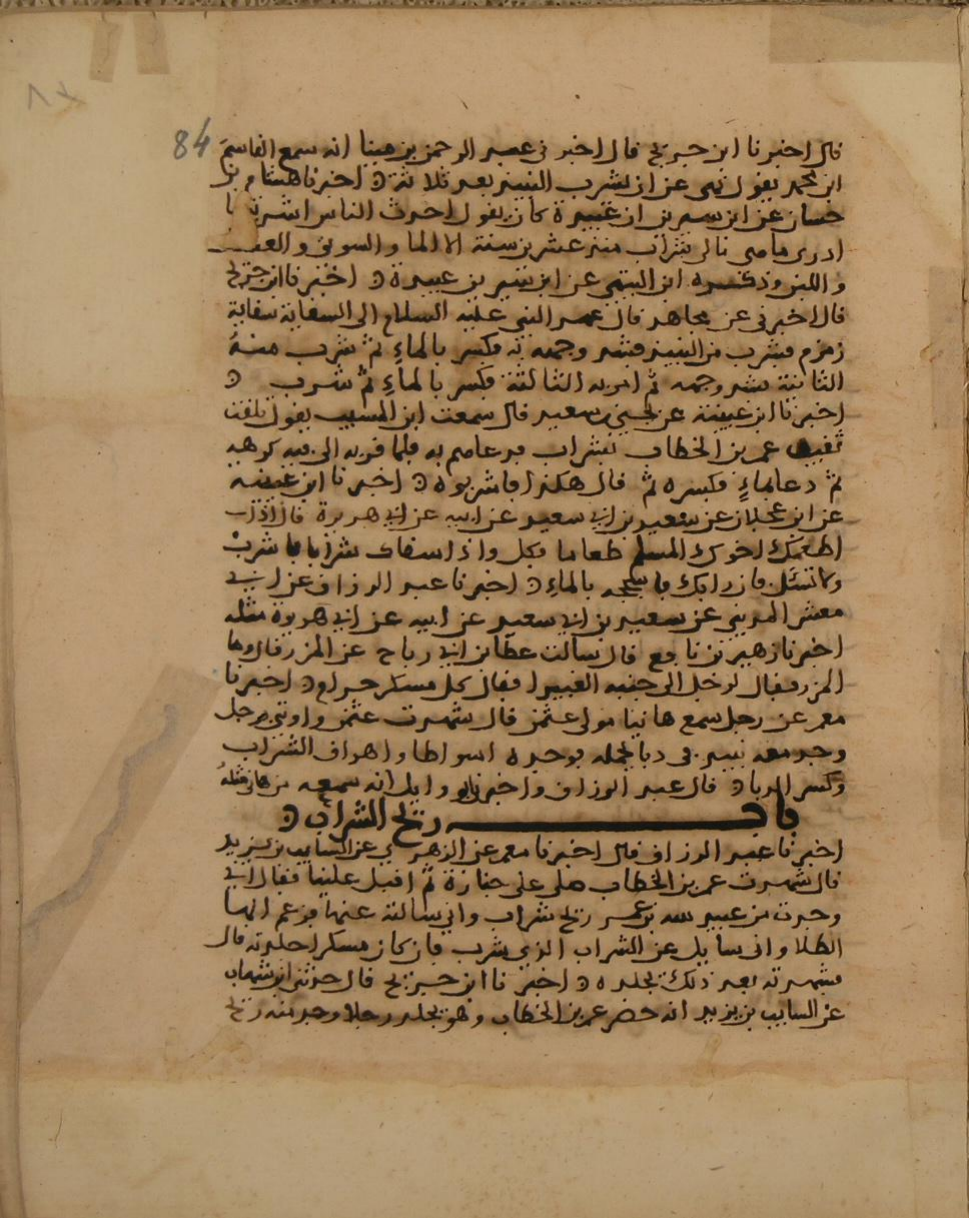 84
قال اخبرنا ابن جريج قال اخبرني عبد الرحمن بن مينا انه سمع القاسم
ابن محمد يقول نهى عن ان يشرب النبيذ بعد ثلاثة اخبرنا هشام بن
حسان عن ابن سيرين ان عبيدة كان يقول احدث الناس اشربة ما
ادري ما هي مالي شراب منذ عشرين سنة الا الما والسويق والعسل
واللبن وذكره ابن التيمي عن ابن سيرين عن عبيدة اخبرنا ابن جريج
قال اخبرني عن مجاهد قال عمد النبي عليه السلام الى السقاية سقاية
زمزم فشرب من النبيذ فشد وجهه به فكسر بالماء ثم شرب منه
الثانية فشد وجهه ثم امر به الثالثة فكسر بالماء ثم شرب
اخبرنا ابن عيينة عن يحيى بن سعيد قال سمعت ابن المسيب يقول تلقت
ثقيف عمر بن الخطاب بشراب فدعاهم به فلما قربه الى فيه كرهه
ثم دعا بماء فكسره ثم قال هكذا فاشربوه اخبرنا ابن عيينة
عن ابن عجلان عن سعيد بن ابي سعيد عن ابيه عن ابي هريرة قال اذا
اطعمك اخوك المسلم طعاما فكل واذا سقاك شرابا فاشرب
ولا تسئل فان رابك فاشججه بالماء اخبرنا عبد الرزاق عن ابي
معشر المديني عن سعيد بن ابي سعيد عن ابيه عن ابي هريرة مثله
اخبرنا زهير بن نافع قال سالت عطا بن ابي رباح عن المزر قال وما
المزر فقال لرجل الى جنبه الغبيرا فقال كل مسكر حرام اخبرنا
معمر عن رجل سمع هانيا مولى عثمن قال شهدت عثمن واوتي برجل
وجد معه نبيذ في دبا يحمله فجلده اسواطا واهراق الشراب
وكسر الدبا قال عبد الرزاق واخبرني ابو وايل انه سمعه من هاني مثله
باب ريح الشراب
اخبرنا عبد الرزاق قال اخبرنا معمر عن الزهري عن السايب بن يزيد
قال شهدت عمر بن الخطاب صلى على جنازة ثم اقبل علينا فقال اني
وجدت من عبيد الله بن عمر ريح شراب واني سالته عنها فزعم انها
الطلا واني سايل عن الشراب الذي شرب فان كان مسكرا جلدته قال
فشهدته بعد ذلك يجلده اخبرنا ابن جريج قال حدثني ابن شهاب
عن السايب بن يزيد انه حضر عمر بن الخطاب وهو يجلد رجلا وجد منه ريح